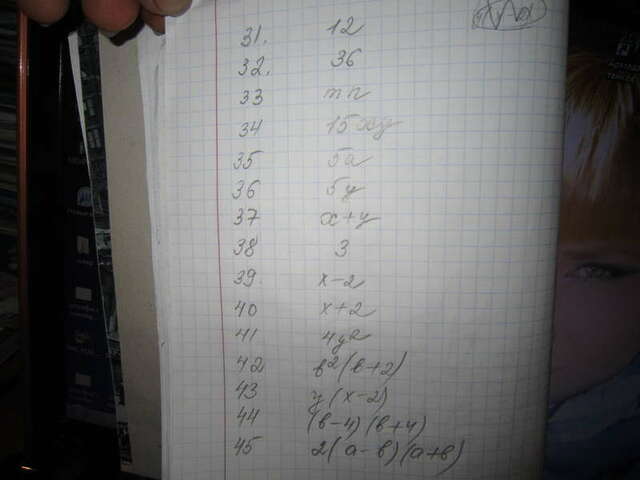 31. 12
32. 36
33 mn
34 15xy
35 5a
36 5y
37 x+y
38 3
39 x-2
40 x+2
41 4y²
42 b²(b+2)
43 y(x-2)
44 (b-4)(b+4)
45 2(a-b)(a+b)